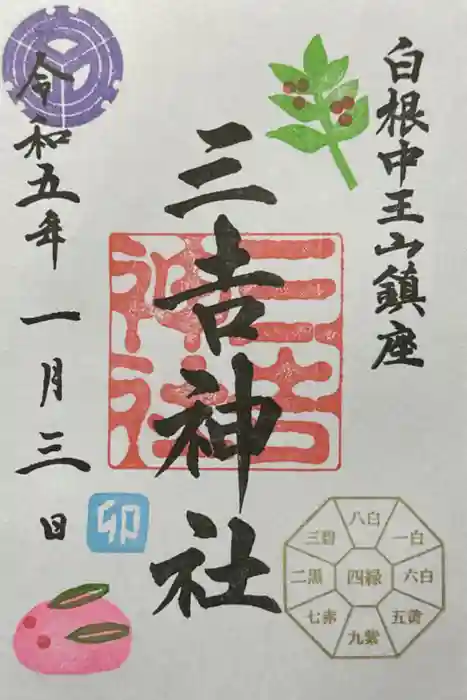 白根中王山鎮座
三吉神社
三吉神社
令和五年 一月三日
卯
八白
三碧
一白
二黒
四緑
六白
七赤
五黄
九紫